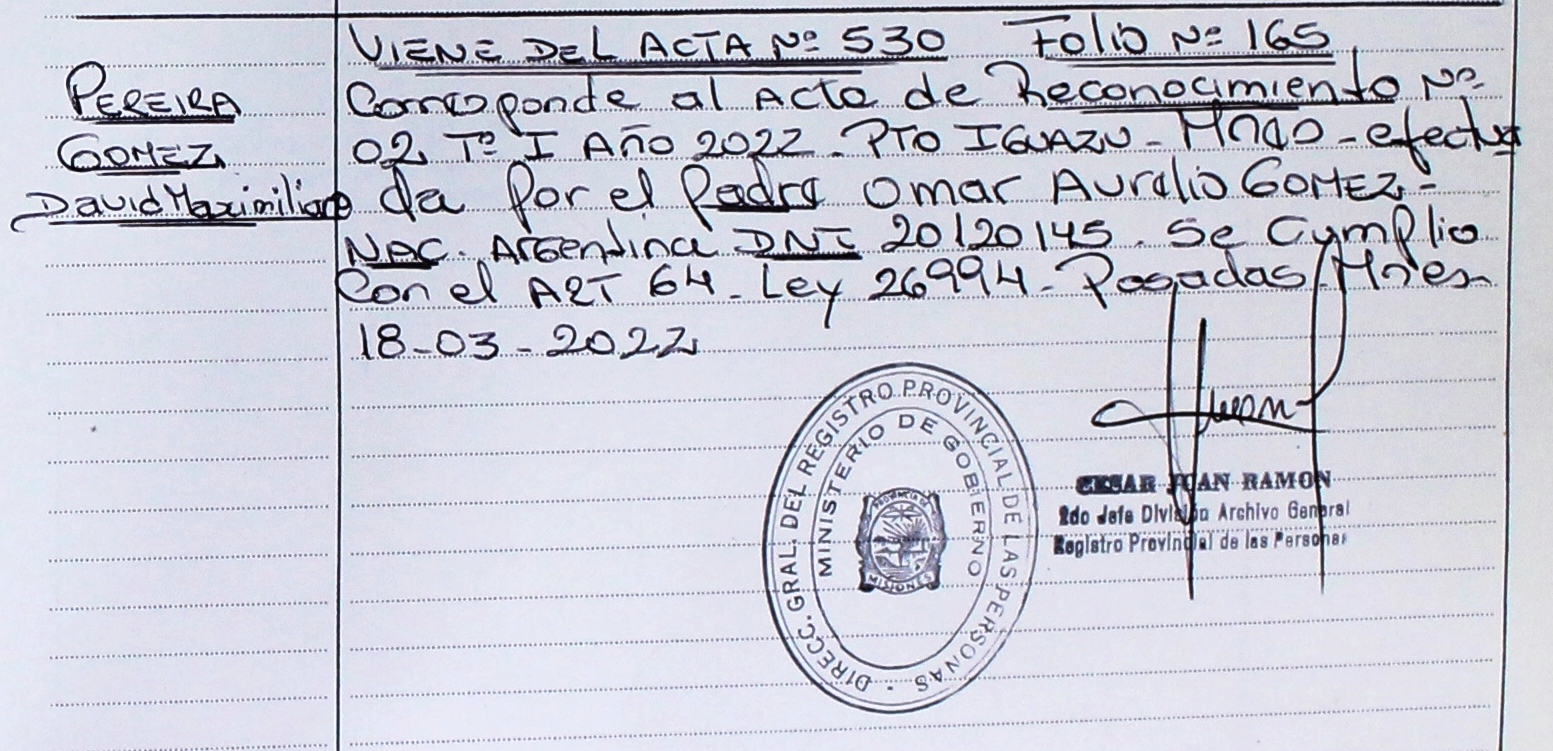 VIENE DEL ACTA Nº 530 Folio Nº 165
PEREIRA
GOMEZ
David Maximiliano
Corresponde al Acta de Reconocimiento Nº
02 Tº I Año 2022 - PTO IGUAZU - Mnes - efectua
da por el padre Omar Aurelio GOMEZ -
NAC. Argentina DNI 20120145. Se Cumplio
Con el ART 64 - Ley 26994 - Posadas Mnes
18-03-2022
DIRECC. GRAL. DEL REGISTRO PROVINCIAL DE LAS PERSONAS -
MINISTERIO DE GOBIERNO
PROVINCIA DE
MISIONES
CESAR JUAN RAMON
2do Jefe División Archivo General
Registro Provincial de las Personas